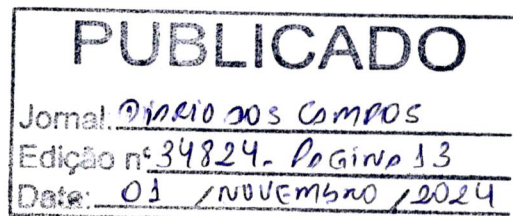 PUBLICADO
Jornal: DIARIO DOS CAMPOS
Edição nº 34824- PAGINA 13
Data: 01 / NOVEMBRO / 2024